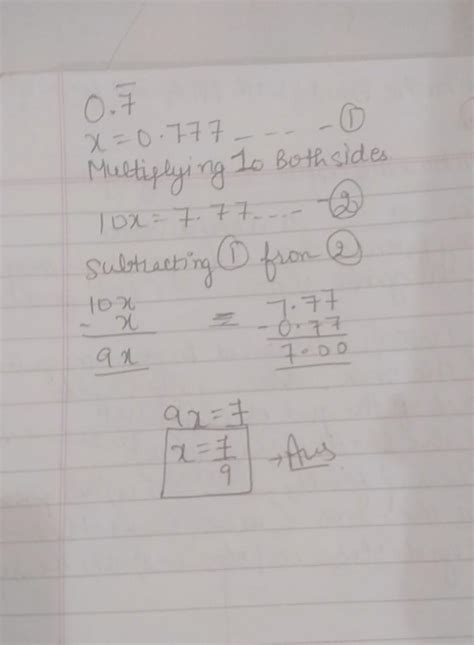 0.7̅
x = 0.777 _ _ _ _ - ①
Multiplying 10 Both sides
10x = 7.77.... - ②
Subtracting ① from ②
10x = 7.77
- x - 0.77
9x 7.00
9x = 7
x = 7/9 → Ans